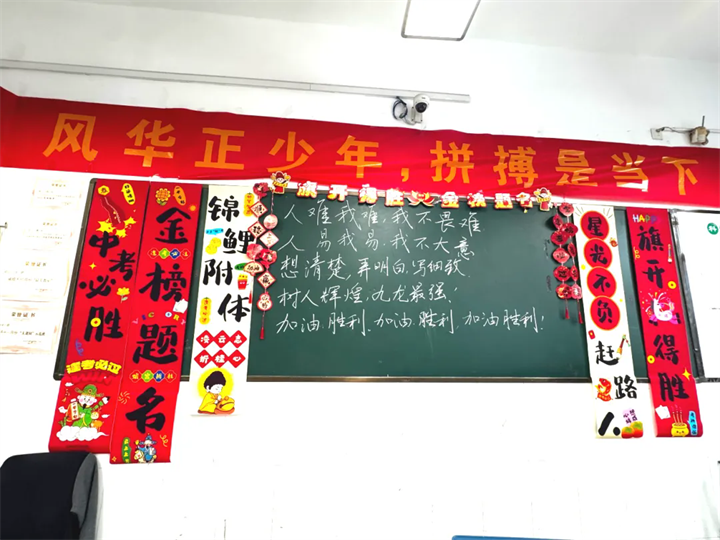 风华正少年,拼搏是当下
旗开得胜 金榜题名
中考必胜
逢考必过
金榜题名
锦鲤附体
人难我难,我不畏难
人易我易,我不大意
想清楚,弄明白,写细致.
树人辉煌,九龙最强!
加油.胜利,加油.胜利,加油.胜利!
星光不负
赶路人
HAPPY
旗开得胜